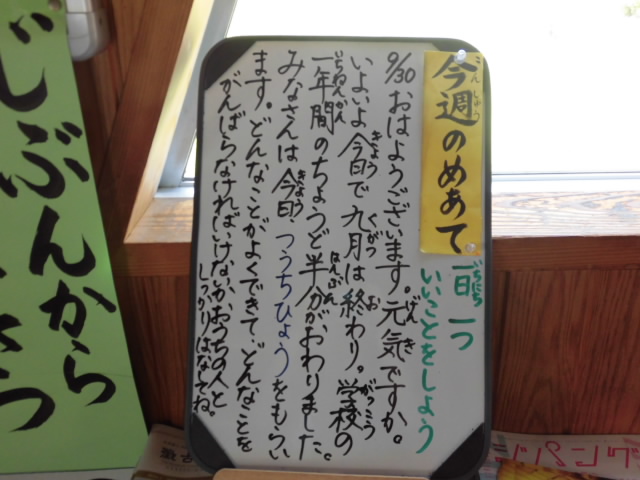 今週のめあて
こんしゅう
一日 一つ
いちにち
いいことをしよう
9/30 おはようございます。元気ですか。
げんき
いよいよ今日で九月は終わり。学校の
きょう くがつ お がっこう
一年間のちょうど半分がおわりました。
いちねんかん はんぶん
みなさんは今日、つうちひょうをもらい
きょう
ます。どんなことがよくできて、どんなことを
がんばらなければいけないかおうちの人と
しっかりはなしてね。
じぶんから